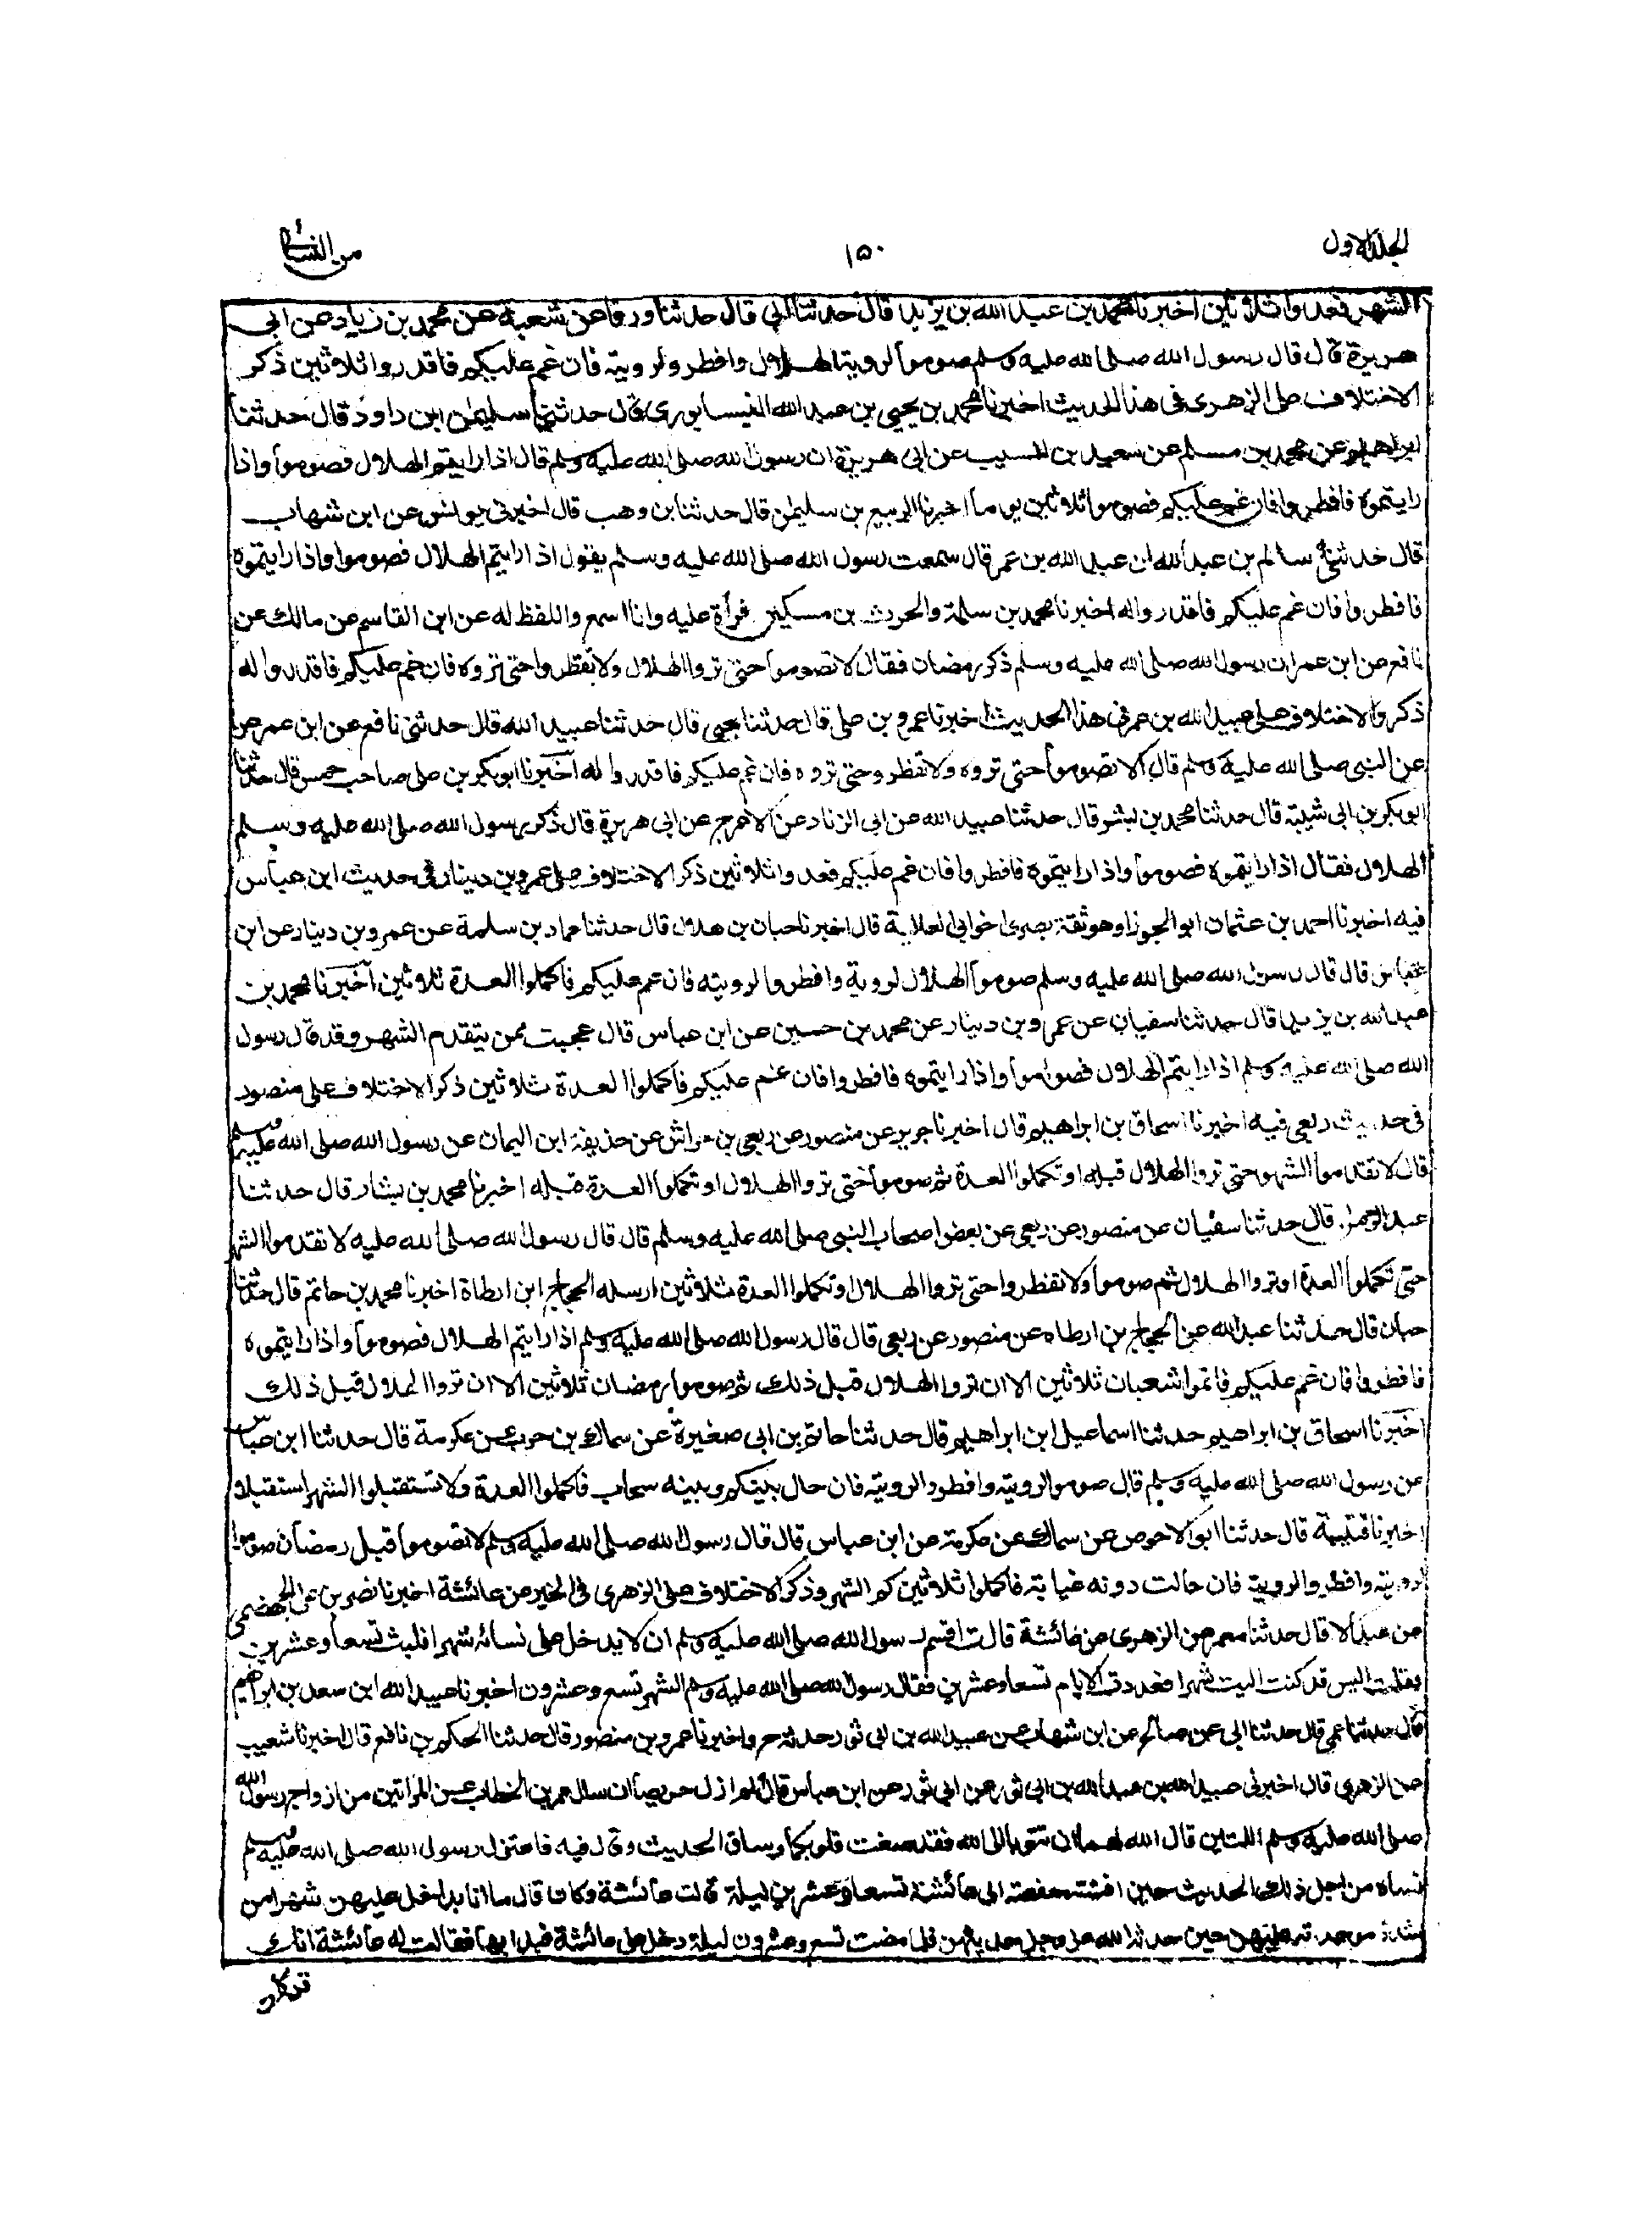 الجلد الاول
١٥٠
من النسائي
الشهر فعدوا ثلاثين اخبرنا محمد بن عبد الله بن يزيد قال حدثنا ابي قال حدثنا ورقا عن شعبة عن محمد بن زياد عن ابي
هريرة قال قال رسول الله صلى الله عليه وسلم صوموا لرويتالهلال وافطروا لرويته فان غم عليكم فاقدروا ثلاثين ذكر
الاختلاف على الزهرى فى هذا الحديث اخبرنا محمد بن يحيى بن عبد الله النيسابورى قال حدثنا سليمٰن ابن داود قال حدثنا
ابراهيم عن محمد بن مسلم عن سعيد بن المسيب عن ابى هريرة ان رسول الله صلى الله عليه وسلم قال اذا رايتم الهلال فصوموا واذا
رايتموه فافطروا فان غم عليكم فصوموا ثلاثين يوما اخبرنا الربيع بن سليمٰن قال حدثنا بن وهب قال اخبرنى يونس عن ابن شهاب
قال حدثنى سالم بن عبد الله ان عبد الله بن عمر قال سمعت رسول الله صلى الله عليه وسلم يقول اذا رايتم الهلال فصوموا واذا رايتموه
فافطروا فان غم عليكم فاقدروا له اخبرنا محمد بن سلمة والحرث بن مسكين قرأة عليه وانا اسمع واللفظ له عن ابن القاسم عن مالك عن
نافع عن ابن عمر ان رسول الله صلى الله عليه وسلم ذكر رمضان فقال لا تصوموا حتى تروا الهلال ولا تفطروا حتى تروه فان غم عليكم فاقدروا له
ذكر والاختلاف على عبيد الله بن عمر فى هذا الحديث اخبرنا عمرو بن على قال حدثنا يحيى قال حدثنا عبيد الله قال حدثنى نافع عن ابن عمر عن
عن النبى صلى الله عليه وسلم قال لا تصوموا حتى تروه ولا تفطروحتى تروه فان غم عليكم فاقدروا له اخبرنا ابوبكر بن على صاحب حمص قال حدثنا
ابوبكر بن ابى شيبة قال حدثنا محمد بن بشر قال حدثنا عبيد الله عن ابى الزناد عن الاعرج عن ابى هريرة قال ذكر رسول الله صلى الله عليه وسلم
الهلال فقال اذا رايتموه فصوموا واذا رايتموه فافطروا فان غم عليكم فعدوا ثلاثين ذكر الاختلاف على عمرو بن دينار فى حديث ابن عباس
فيه اخبرنا احمد بن عثمان ابو الجوزا وهو ثقة بصرى اخو ابى العلاية قال اخبرنا حبان بن هلال قال حدثنا حماد بن سلمة عن عمرو بن دينار عن ابن
عباس قال قال رسول الله صلى الله عليه وسلم صوموا الهلال لروية وافطروا لرويته فان غم عليكم فاكملوا العدة ثلاثين اخبرنا محمد بن
عبد الله بن يزيد قال حدثنا سفيان عن عمرو بن دينار عن محمد بن حسين عن ابن عباس قال عجبت ممن يتقدم الشهر وقد قال رسول
الله صلى الله عليه وسلم اذا رايتم الهلال فصوموا واذا رايتموه فافطروا فان غم عليكم فاكملوا العدة ثلاثين ذكر الاختلاف على منصور
فى حديث ربعى فيه اخبرنا اسحاق بن ابراهيم قال اخبرنا جرير عن منصور عن ربعى بن حراش عن حذيفة ابن اليمان عن رسول الله صلى الله عليه وسلم
قال لا تقدموا الشهر حتى تروا الهلال قبله او تكملوا العدة ثم صوموا حتى تروا الهلال او تكملوا العدة قبله اخبرنا محمد بن بشار قال حدثنا
عبد الرحمن قال حدثنا سفيان عن منصور عن ربعى عن بعض اصحاب النبى صلى الله عليه وسلم قال قال رسول الله صلى الله عليه لا تقدموا الشهر
حتى تكملوا العدة اوتروا الهلال ثم صوموا ولا تفطروا حتى تروا الهلال او تكملوا العدة ثلاثين ارسله الحجاج ابن ارطاة اخبرنا محمد بن حاتم قال حدثنا
حبان قال حدثنا عبد الله عن الحجاج بن ارطاه عن منصور عن ربعى قال قال رسول الله صلى الله عليه وسلم اذا رايتم الهلال فصوموا واذا رايتموه
فافطروا فان غم عليكم فاتموا شعبان ثلاثين الا ان تروا الهلال قبل ذلك ثم صوموا رمضان ثلاثين الا ان تروا الهلال قبل ذلك
اخبرنا اسحاق بن ابراهيم حدثنا اسماعيل ابن ابراهيم قال حدثنا حاتم بن ابى صغيرة عن سماك بن حرب عن عكرمة قال حدثنا ابن عباس
عن رسول الله صلى الله عليه وسلم قال صوموا لرويته وافطروا لرويته فان حال بينكم وبينه سحاب فاكملوا العدة ولا تستقبلوا الشهر استقبلا
اخبرنا قتيبة قال حدثنا ابو الاحوص عن سماك عن عكرمة عن ابن عباس قال قال رسول الله صلى الله عليه وسلم لا تصوموا قبل رمضان صوموا
لرويته وافطروا لرويته فان حالت دونه غياية فاكملوا ثلاثين كم الشهر وذكر الاختلاف على الزهرى فى الخبر عن عائشة اخبرنا نصر بن على الجهضمى
عن عبد الا قال حدثنا معمر عن الزهرى عن عائشة قالت اقسم رسول الله صلى الله عليه وسلم ان لا يدخل على نسائه شهرا فلبث تسعا وعشرين
فقلت اليس قد كنت اليت شهرا فعددت الايام تسعا وعشرين فقال رسول الله صلى الله عليه وسلم الشهر تسع وعشرون اخبرنا عبيد الله ابن سعد بن ابراهيم
قال حدثنا عمى قال حدثنا ابى عن صالح عن ابن شهاب عن عبيد الله بن ابى ثور حدثه ح واخبرنا عمرو بن منصور قال حدثنا الحكم بن نافع قال اخبرنا شعيب
عن الزهرى قال اخبرنى عبيد الله بن عبد الله بن ابى ثور عن ابى ثور عن ابن عباس قال لم ازل حريصا ان سال عمر بن الخطاب عن المراتين من ازواج رسول الله
صلى الله عليه وسلم اللتين قال الله لهما ان تتوبا الى الله فقد صغت قلوبكما وساق الحديث وقال فيه فاعتزل رسول الله صلى الله عليه وسلم
نساه من اجل ذلك الحديث حين افشته حفصة الى عائشة تسعا وعشرين ليلة قالت عائشة وكان قال ما انا بداخل عليهن شهرا من
شدة موجدته عليهن حين حدثه الله عز وجل حديثهن فلما مضت تسع وعشرون ليلة دخل على عائشة فبدا بها فقالت له عائشة انك